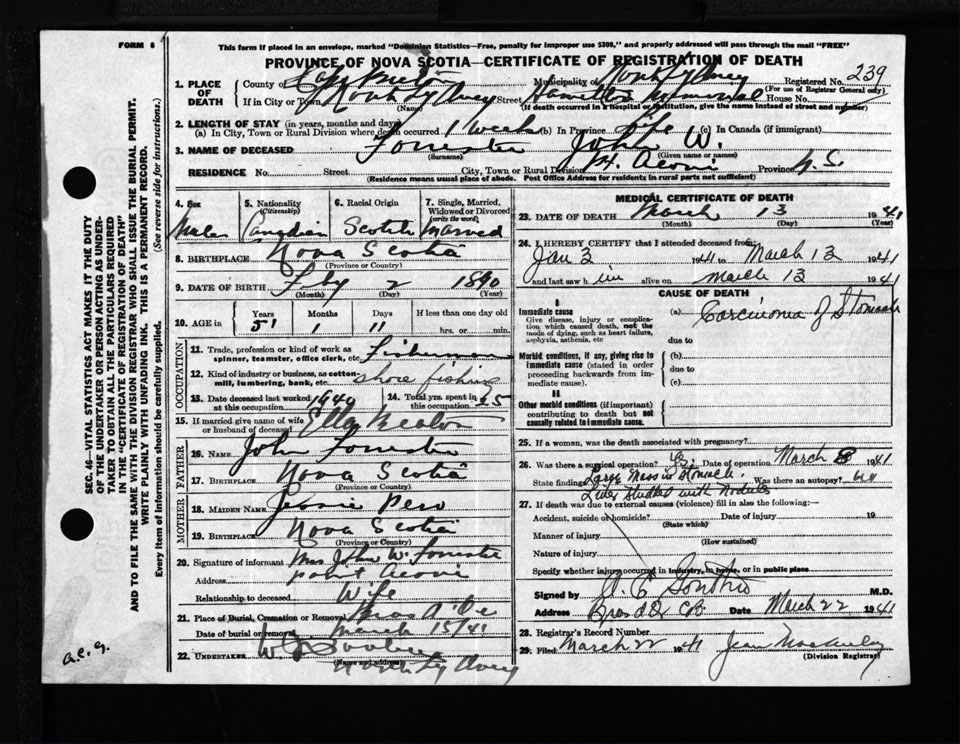 FORM 6
This form if placed in an envelope, marked "Dominion Statistics—Free, penalty for improper use $300," and properly addressed will pass through the mail "FREE"
PROVINCE OF NOVA SCOTIA—CERTIFICATE OF REGISTRATION OF DEATH
239
1. PLACE OF DEATH County of Cape Breton Municipality of North Sydney Registered No.
(For use of Registrar General only)
If in City or Town North Sydney Street Hamilton Memorial House No.
(Name) (If death occurred in a hospital or institution, give the name instead of street and number)
2. LENGTH OF STAY (in years, months and days)
(a) In City, Town or Rural Division where death occurred 1 week (b) In Province Life (c) In Canada (if immigrant)
3. NAME OF DECEASED Forrester John W.
(Surname) (Given name or names)
RESIDENCE No. Street City, Town or Rural Division Pt. Aconi Province N.S.
(Residence means usual place of abode. Post Office Address for residents in rural parts not sufficient)
4. Sex Male
5. Nationality (Citizenship) Canadian
6. Racial Origin Scotch
7. Single, Married, Widowed or Divorced (write the word) Married
8. BIRTHPLACE Nova Scotia
(Province or Country)
9. DATE OF BIRTH Feby 2 1890
(Month) (Day) (Year)
10. AGE in Years Months Days If less than one day old
51 1 11 hrs. or min.
OCCUPATION
11. Trade, profession or kind of work as spinner, teamster, office clerk, etc. Fisherman
12. Kind of industry or business, as cotton-mill, lumbering, bank, etc. shore fishing
13. Date deceased last worked at this occupation 1940
14. Total yrs. spent in this occupation 25
15. If married give name of wife or husband of deceased Ella
FATHER
16. Name John Forrester
17. Birthplace Nova Scotia
(Province or Country)
MOTHER
18. MAIDEN NAME Jessie
19. Birthplace Nova Scotia
(Province or Country)
20. Signature of informant Mrs John W. Forrester
Address point Aconi
Relationship to deceased Wife
21. Place of Burial, Cremation or Removal Bras d'Or
Date of burial or removal March 15/41
22. UNDERTAKER
(Name and Address)
North Sydney
MEDICAL CERTIFICATE OF DEATH
23. DATE OF DEATH March 13 1941
(Month) (Day) (Year)
24. I HEREBY CERTIFY that I attended deceased from:
Jan 3 1941 to March 13 1941
and last saw him alive on March 13 1941
CAUSE OF DEATH
I
Immediate cause
Give disease, injury or complication which caused death, not the mode of dying, such as heart failure, asphyxia, asthenia, etc
(a) Carcinoma of Stomach
due to
Morbid conditions, if any, giving rise to immediate cause (stated in order proceeding backwards from immediate cause).
(b)
due to
(c)
II
Other morbid conditions (if important) contributing to death but not causally related to immediate cause.
25. If a woman, was the death associated with pregnancy?
26. Was there a surgical operation? Yes. Date of operation March 8 1941
State findings Large Mass in Stomach. Was there an autopsy? No
Liver studded with Nodules
27. If death was due to external causes (violence) fill in also the following:—
Accident, suicide or homicide? Date of injury 19
(State which)
Manner of injury
(How sustained)
Nature of injury
Specify whether injury occurred in industry, in home, or in public place
Signed by M.D.
Address Bras d'Or CB Date March 22 1941
28. Registrar's Record Number
29. Filed March 22 1941 Jean MacAulay
(Division Registrar)
SEC. 46—VITAL STATISTICS ACT MAKES IT THE DUTY
OF THE UNDERTAKER OR PERSON ACTING AS UNDER-
TAKER TO OBTAIN ALL THE PARTICULARS REQUIRED
IN THE "CERTIFICATE OF REGISTRATION OF DEATH"
AND TO FILE THE SAME WITH THE DIVISION REGISTRAR WHO SHALL ISSUE THE BURIAL PERMIT.
WRITE PLAINLY WITH UNFADING INK. THIS IS A PERMANENT RECORD.
Every item of information should be carefully supplied. (See reverse side for instructions.)